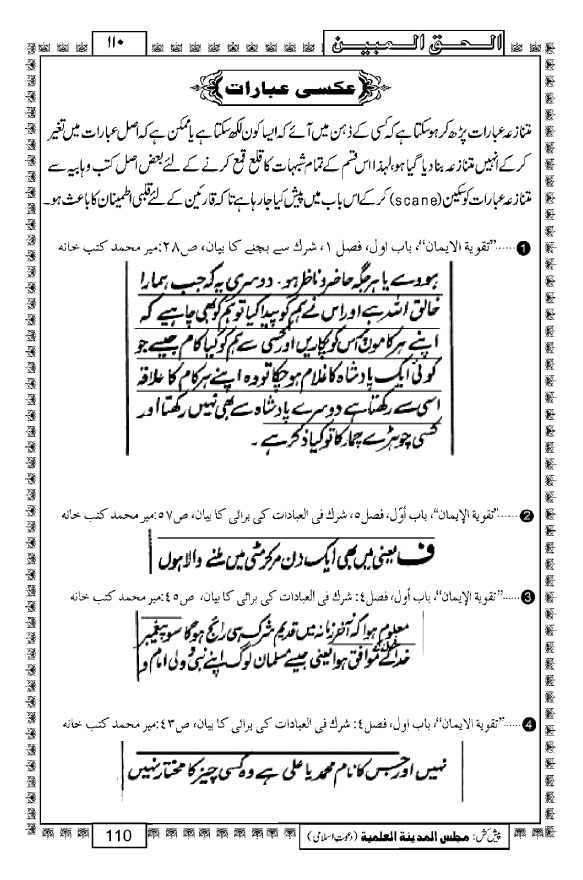 الحق المبین
۱۱۰
عکسی عبارات
متنازعہ عبارات پڑھ کر ہوسکتا ہے کہ کسی کے ذہن میں آئے کہ ایسا کون لکھ سکتا ہے یا ممکن ہے کہ اصل عبارات میں تغیر
کر کے انہیں متنازعہ بنا دیا گیا ہو، لہٰذا اس قسم کے تمام شبہات کا قلع قمع کرنے کے لئے بعض اصل کتب وہابیہ سے
متنازعہ عبارات کو سکین (scane) کر کے اس باب میں پیش کیا جا رہا ہے تا کہ قارئین کے لئے قلبی اطمینان کا باعث ہو۔
1 ......"تقویة الایمان"، باب اول، فصل ۱، شرك سے بچنے کا بیان، ص۲۸:میر محمد کتب خانه
ہووے یا ہر جگہ حاضر و ناظر ہو۔ دوسری یہ کہ جب ہمارا
خالق اللہ ہے اور اس نے ہم کو پیدا کیا تو ہم کو بھی چاہیے کہ
اپنے ہر کاموں میں اس کو پکاریں اور کسی سے ہم کو کیا کام جیسے جو
کوئی ایک بادشاہ کا غلام ہو چکا تو وہ اپنے ہر کام کا علاقہ
اسی سے رکھتا ہے دوسرے بادشاہ سے بھی نہیں رکھتا اور
کسی چوہڑے چمار کا تو کیا ذکر ہے۔
2 ......"تقویة الإیمان"، باب أوّل، فصل٥، شرك فی العبادات کی برائی کا بیان، ص٥٧:میر محمد کتب خانه
ف یعنی میں بھی ایک دن مر کر مٹی میں ملنے والا ہوں
3 ......"تقویة الإیمان"، باب أول، فصل٤: شرك فی العبادات کی برائی کا بیان، ص٤٥:میر محمد کتب خانه
معلوم ہوا کہ آخر زمانہ میں قدیم شرک بھی رائج ہوگا سو پیغمبر
خدا کے فرمانے کے موافق ہوا یعنی جیسے مسلمان لوگ اپنے نبی و ولی امام و
4 ......"تقویة الایمان"، باب اول، فصل٤: شرك فی العبادات کی برائی کا بیان، ص٤٣:میر محمد کتب خانه
نہیں اور جس کا نام محمد یا علی ہے وہ کسی چیز کا مختار نہیں
پیش کش: مجلس المدینة العلمیة (دعوتِ اسلامی)
110